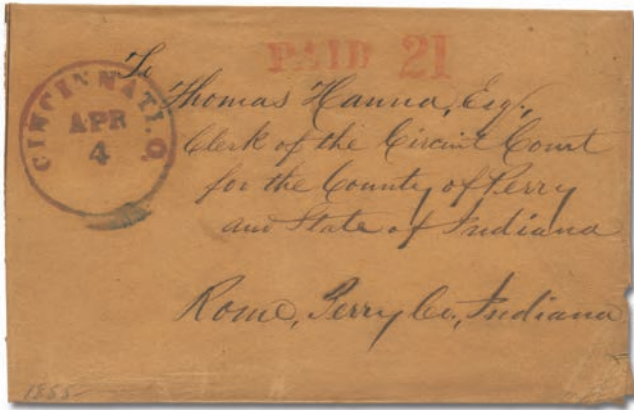 PAID 21
CINCINNATI. O.
APR
4
To
Thomas Hanna, Esq.,
Clerk of the Circuit Court
for the County of Perry
and State of Indiana
Rome, Perry Co., Indiana
1855